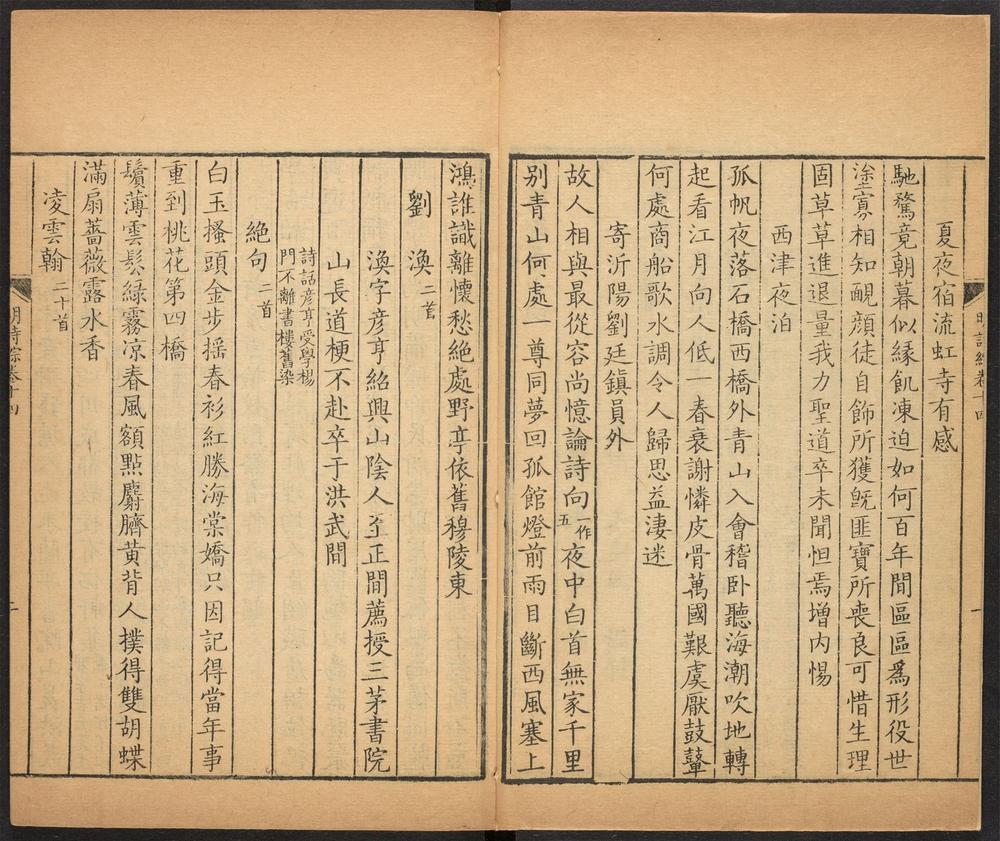 夏夜宿流虹寺有感
馳騖竟朝暮似緣飢凍迫如何百年間區區爲形役世
塗寡相知靦顔徒自飾所獲旣匪寶所喪良可惜生理
固草草進退量我力聖道卒未聞怛焉增内惕
西津夜泊
孤帆夜落石橋西橋外青山入會稽卧聽海潮吹地轉
起看江月向人低一春衰謝憐皮骨萬國艱虞厭鼓鼙
何處商船歌水調令人歸思益淒迷
寄沂陽劉廷鎮員外
故人相與最從容尚憶論詩向一作五夜中白首無家千里
别青山何處一尊同夢回孤館燈前雨目斷西風塞上
鴻誰識離懷愁絶處野亭依舊穆陵東
劉渙二首
渙字彦亨紹興山陰人至正間薦授三茅書院
山長道梗不赴卒于洪武間
詩話彦亨受學楊
門不離書樓舊染
絶句二首
白玉搔頭金步摇春衫紅勝海棠嬌只因記得當年事
重到桃花第四橋
鬢薄雲鬆綠霧凉春風額點麝臍黄背人撲得雙胡蝶
滿扇薔薇露水香
凌雲翰二十首
明詩綜卷十四